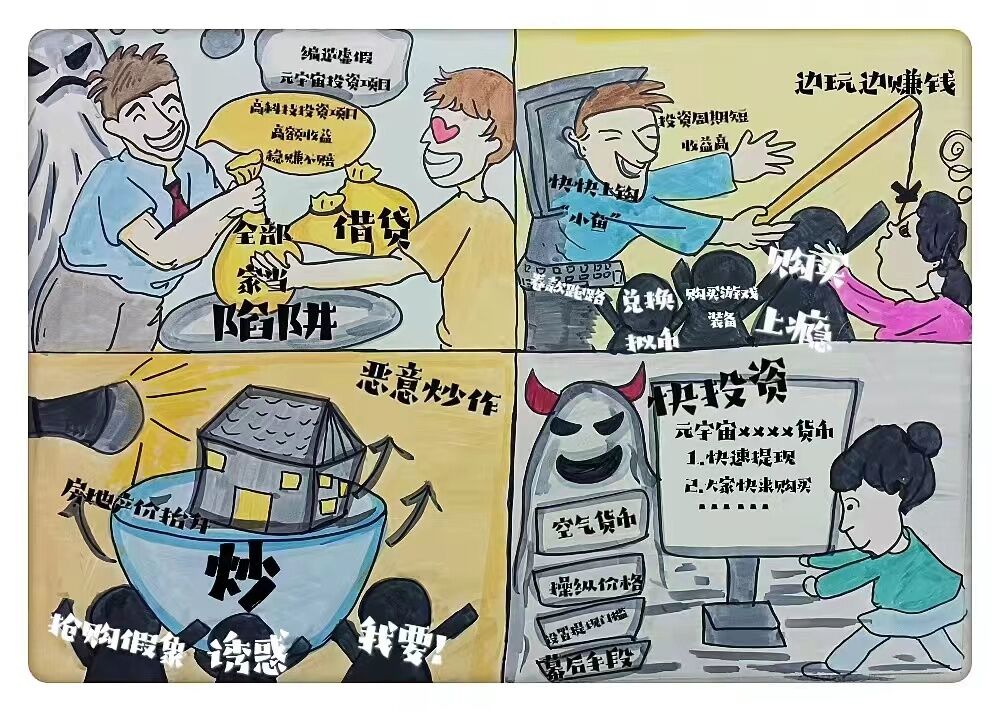 编造虚假
元宇宙投资项目
高科技投资项目
高额收益
稳赚不赔
全部
家当
借贷
陷阱
边玩边赚钱
投资周期短
收益高
快快上钩
“小鱼”
卷款跑路
兑换
拟币
购买游戏
装备
购买
上瘾
恶意炒作
房地产价抬升
炒
抢购假象
诱惑
我要!
快投资
元宇宙××××货币
1.快速提现
2.大家快来购买
......
空气货币
操纵价格
设置提现门槛
幕后手段